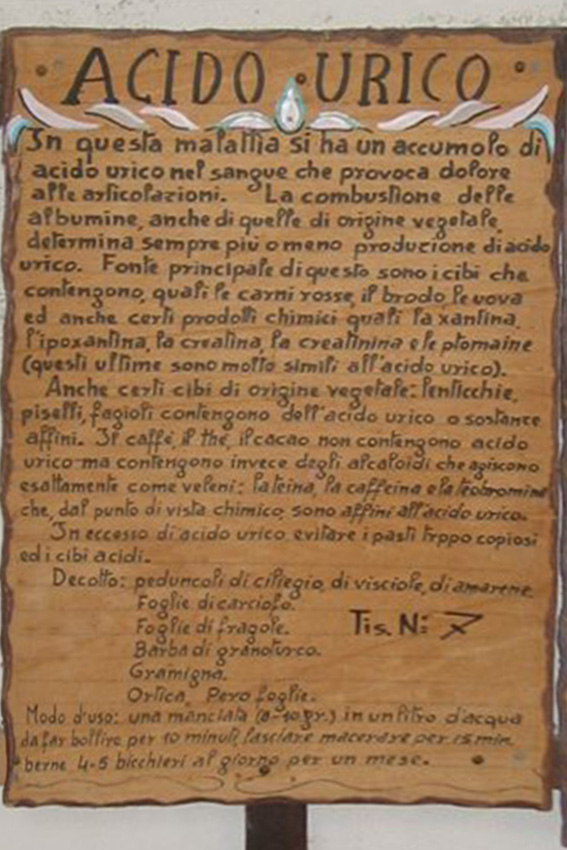 ACIDO URICO
In questa malattia si ha un accumolo di
acido urico nel sangue che provoca dolore
alle articolazioni. La combustione delle
albumine, anche di quelle di origine vegetale,
determina sempre più o meno produzione di acido
urico. Fonte principale di questo sono i cibi che
contengono, quali le carni rosse, il brodo, le uova
ed anche certi prodotti chimici quali la xantina,
l'ipoxantina, la creatina, la creatinina e le ptomaine
(questi ultime sono molto simili all'acido urico).
Anche certi cibi di origine vegetale: lenticchie,
piselli, fagioli contengono dell'acido urico o sostance
affini. Il caffè, il thé, il cacao non contengono acido
urico ma contengono invece degli alcaloidi che agiscono
esattamente come veleni: la teina, la caffeina e la teobromine
che, dal punto di vista chimico, sono affini all'acido urico.
In eccesso di acido urico evitare i pasti trppo copiosi
ed i cibi acidi.
Decotto: peduncoli di ciliegio, di visciole, di amarene.
Foglie di carciofo.
Foglie di fragole. Tis. N: 7
Barba di granoturco.
Gramigna.
Ortica, Pero foglie.
Modo d'uso: una manciata (8-10 gr.) in un litro d'acqua
da far bollire per 10 minuti, lasciare macerare per 15 min.
berne 4-5 bicchieri al giorno per un mese.